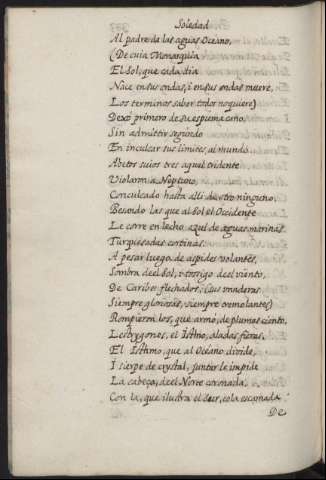 Soledad
Al padre de las aguas Océano,
(De cuia Monarquía
El Sol, que cada dia
Nace en sus ondas, i en sus ondas muere,
Los terminos saber todos no quiere)
Dexó primero de su espuma cano,
Sin admitir segundo
En inculcar sus limites al mundo.
Abetos suios tres aquel tridente
Violaron a Neptuno,
Conculcado hasta alli de otro ninguno,
Besando las que al Sol el Occidente
Le corre en lecho azul de aguas marinas
Turquesadas cortinas.
A pesar luego de aspides volantes,
Sombra de el Sol, i tosigo de el viento,
De Caribes flechados, sus vanderas
Siempre gloriosas, siempre tremolantes,
Rompieron los, que armó, de plumas ciento,
Lestrygones, el Isthmo, aladas fieras.
El Isthmo, que al Océano divide,
I sierpe de crystal, juntar le impide
La cabeça, de el Norte coronada,
Con la, que ilustra el Sur, cola escamada
De